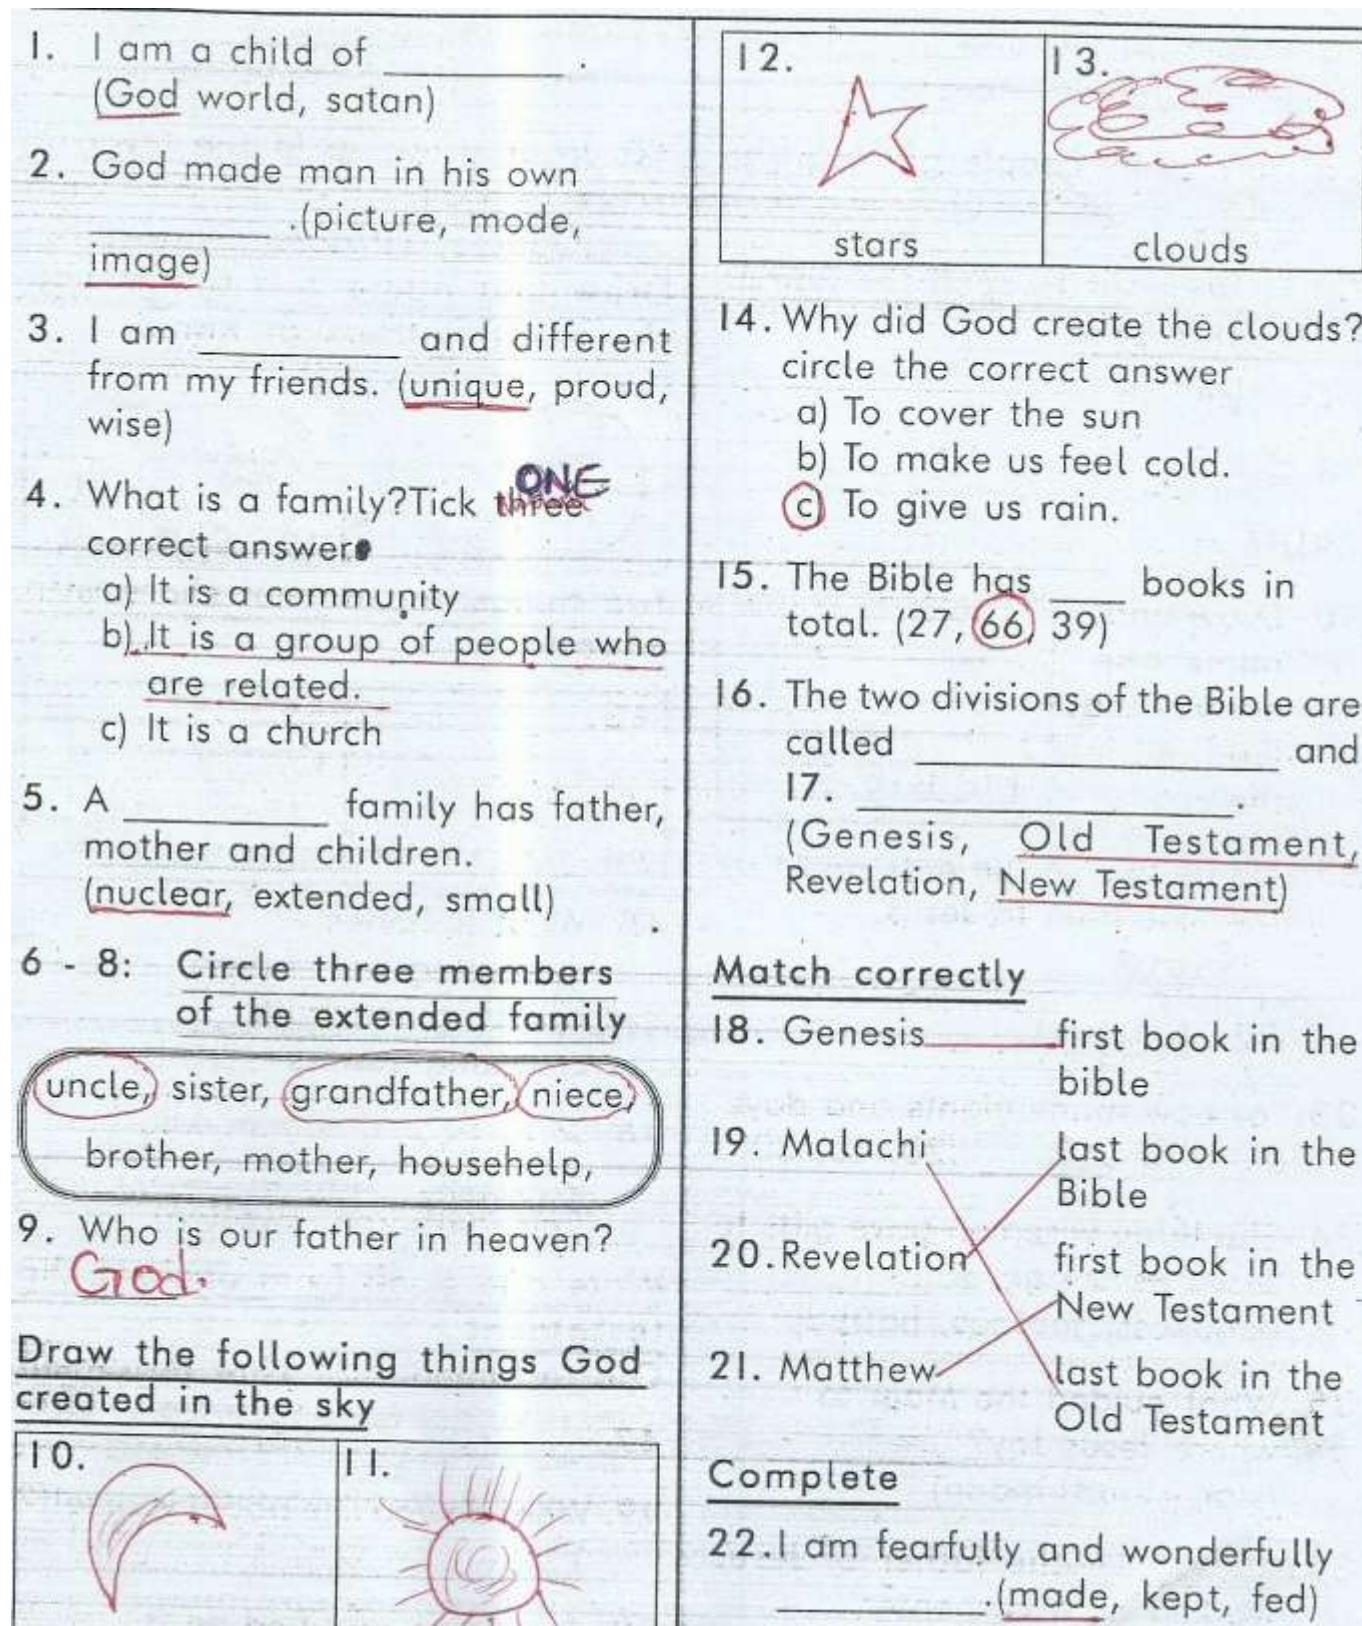 1. I am a child of ________.
(God world, satan)
2. God made man in his own
________.(picture, mode,
image)
3. I am ________ and different
from my friends. (unique, proud,
wise)
ONE
4. What is a family?Tick three
correct answers
a) It is a community
b) It is a group of people who
are related.
c) It is a church
5. A ________ family has father,
mother and children.
(nuclear, extended, small)
6 - 8: Circle three members
of the extended family
uncle, sister, grandfather, niece,
brother, mother, househelp,
9. Who is our father in heaven?
God.
Draw the following things God
created in the sky
10.
11.
12.
stars
13.
clouds
14. Why did God create the clouds?
circle the correct answer
a) To cover the sun
b) To make us feel cold.
c) To give us rain.
15. The Bible has ____ books in
total. (27, 66, 39)
16. The two divisions of the Bible are
called ________ and
17. ________.
(Genesis, Old Testament,
Revelation, New Testament)
Match correctly
18. Genesis first book in the
bible
19. Malachi last book in the
Bible
20. Revelation first book in the
New Testament
21. Matthew last book in the
Old Testament
Complete
22. I am fearfully and wonderfully
________.(made, kept, fed)